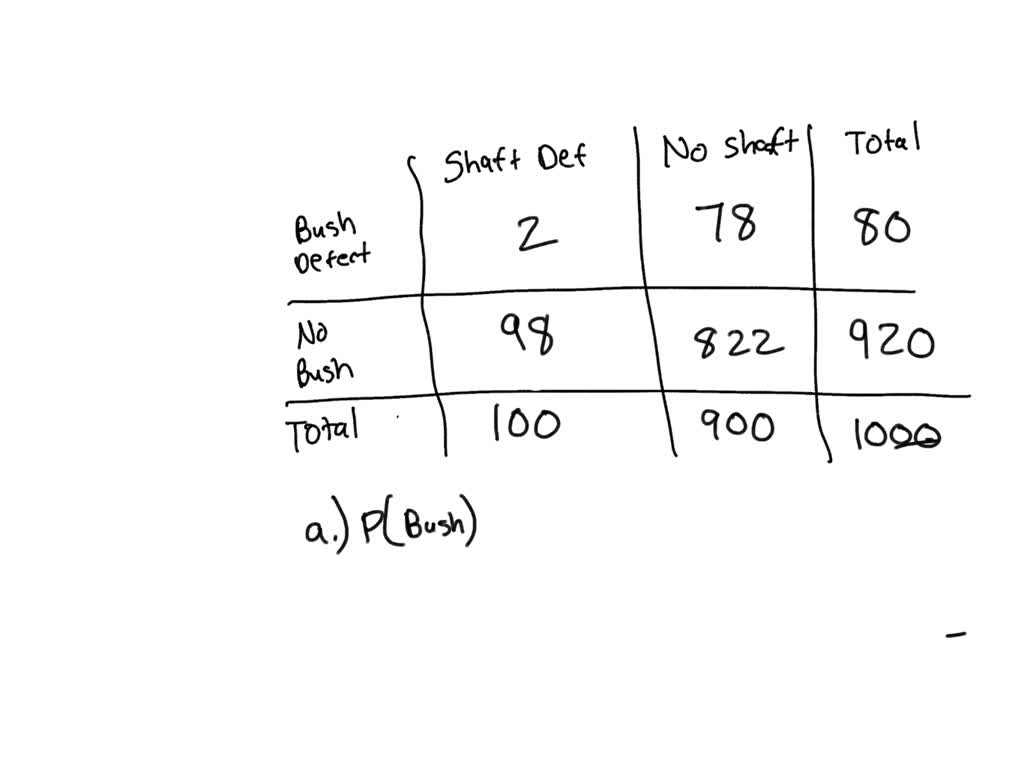 Shaft Def No Shaft Total
Bush Defect 2 78 80
No Bush 98 822 920
Total 100 900 1000
a.) P(Bush)